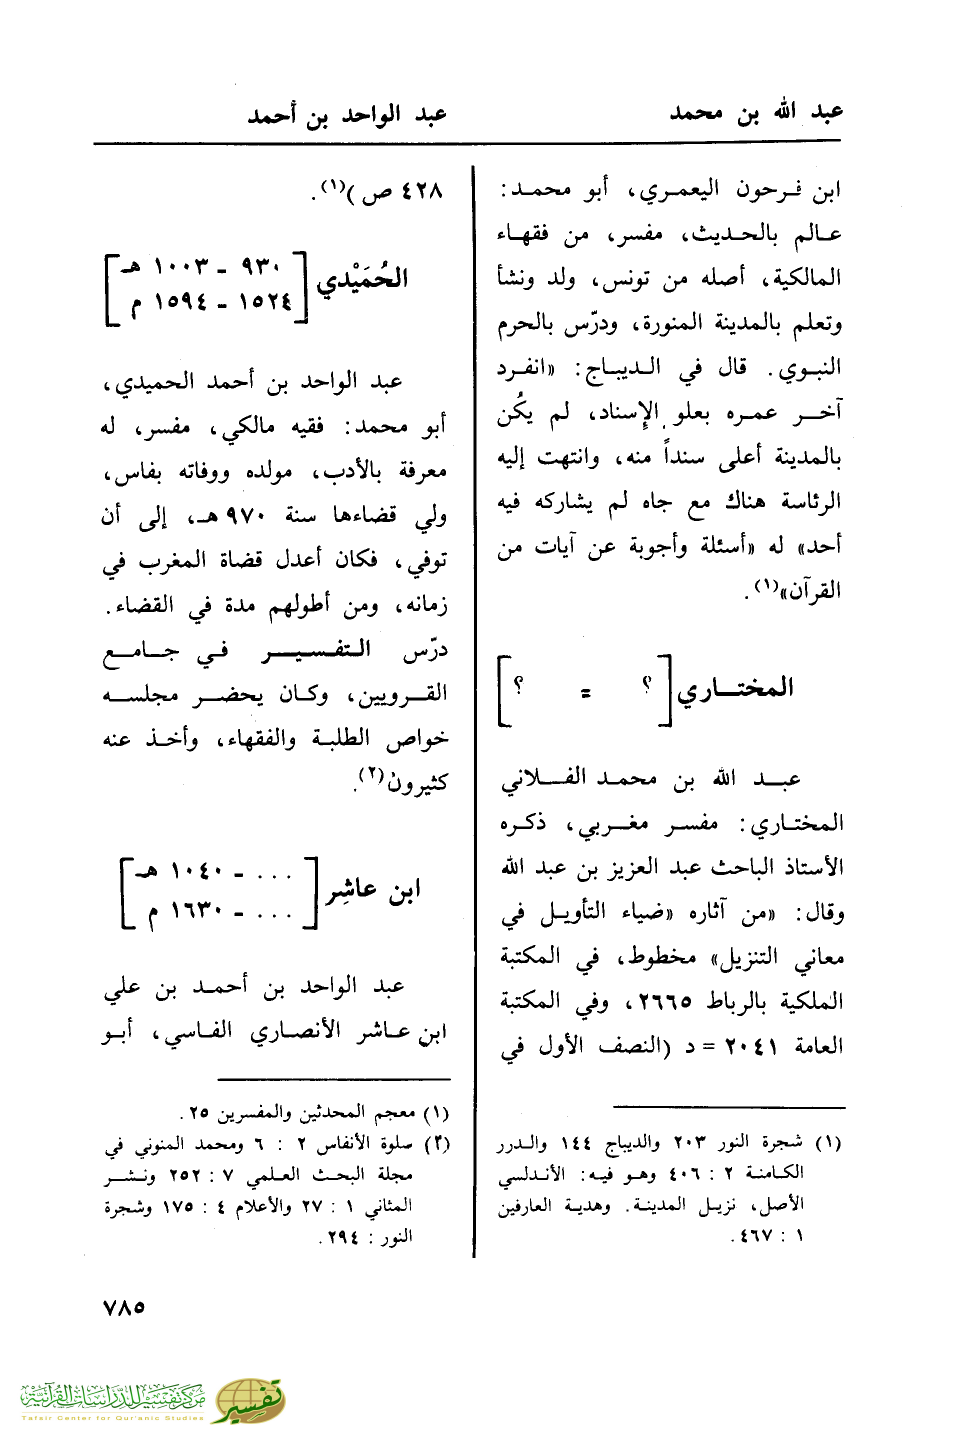 عبد الله بن محمد
عبد الواحد بن أحمد
ابن فرحون اليعمري، أبو محمد:
عالم بالحديث، مفسر، من فقهاء
المالكية، أصله من تونس، ولد ونشأ
وتعلم بالمدينة المنورة، ودرّس بالحرم
النبوي. قال في الديباج: «انفرد
آخر عمره بعلو الإسناد، لم يكُن
بالمدينة أعلى سنداً منه، وانتهت إليه
الرئاسة هناك مع جاه لم يشاركه فيه
أحد» له «أسئلة وأجوبة عن آيات من
القرآن»(١).
المختاري [؟ = ؟]
عبد الله بن محمد الفلاني
المختاري: مفسر مغربي، ذكره
الأستاذ الباحث عبد العزيز بن عبد الله
وقال: «من آثاره «ضياء التأويل في
معاني التنزيل» مخطوط، في المكتبة
الملكية بالرباط ٢٦٦٥، وفي المكتبة
العامة ٢٠٤١ = د (النصف الأول في
(١) شجرة النور ٢٠٣ والديباج ١٤٤ والدرر
الكامنة ٢ : ٤٠٦ وهو فيه: الأندلسي
الأصل، نزيل المدينة. وهدية العارفين
١ : ٤٦٧.
٤٢٨ ص)(١).
الحُمَيْدي [٩٣٠ - ١٠٠٣ هـ
١٥٢٤ - ١٥٩٤ م]
عبد الواحد بن أحمد الحميدي،
أبو محمد: فقيه مالكي، مفسر، له
معرفة بالأدب، مولده ووفاته بفاس،
ولي قضاءها سنة ٩٧٠ هـ، إلى أن
توفي، فكان أعدل قضاة المغرب في
زمانه، ومن أطولهم مدة في القضاء.
درّس التفسير في جامع
القرويين، وكان يحضر مجلسه
خواص الطلبة والفقهاء، وأخذ عنه
كثيرون(٢).
ابن عاشِر [... - ١٠٤٠ هـ
... - ١٦٣٠ م]
عبد الواحد بن أحمد بن علي
ابن عاشر الأنصاري الفاسي، أبو
(١) معجم المحدثين والمفسرين ٢٥.
(٢) سلوة الأنفاس ٢ : ٦ ومحمد المنوني في
مجلة البحث العلمي ٧ : ٢٥٢ ونشر
المثاني ١ : ٢٧ والأعلام ٤ : ١٧٥ وشجرة
النور : ٢٩٤.
٧٨٥
مركز تفسير للدراسات القرآنية
Tafsir Center for Qur'anic Studies
تفسير